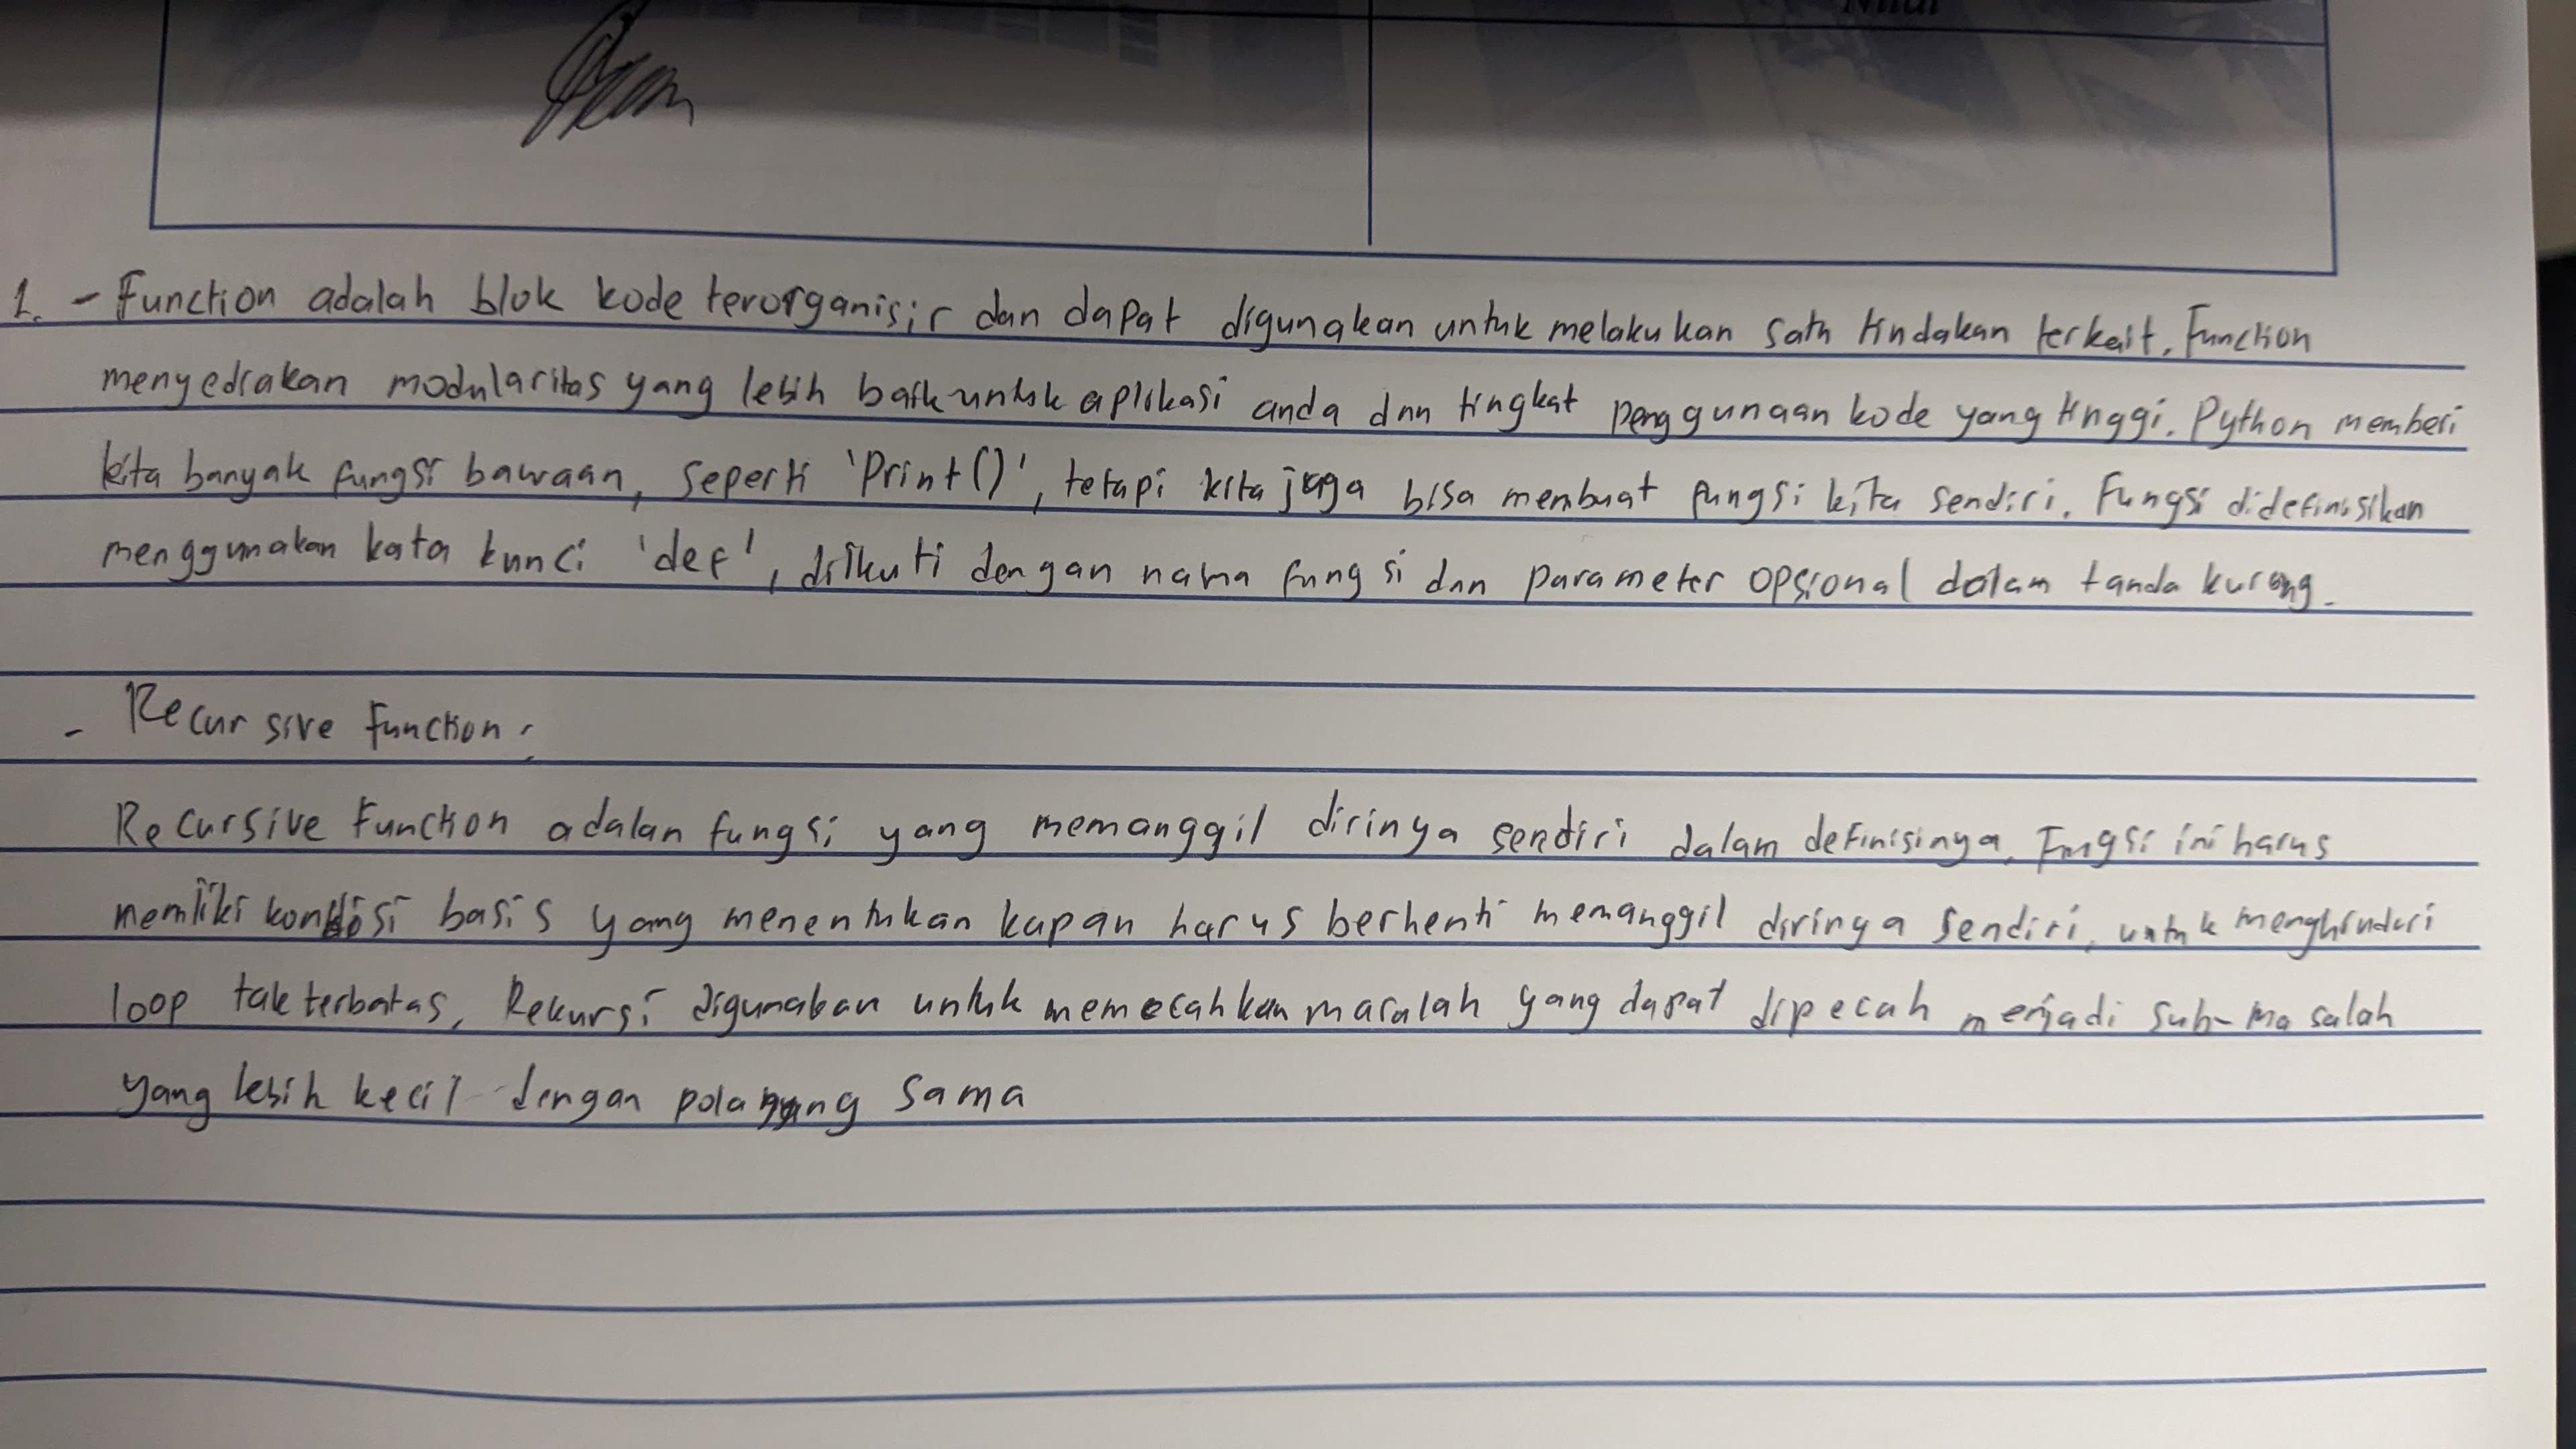 Nilai
1. - Function adalah blok kode terorganisir dan dapat digunakan untuk melakukan satu tindakan terkait. Function
menyediakan modularitas yang lebih baik untuk aplikasi anda dan tingkat penggunaan kode yang tinggi. Python memberi
kita banyak fungsi bawaan, seperti 'Print()', tetapi kita juga bisa membuat fungsi kita sendiri. Fungsi didefinisikan
menggunakan kata kunci 'def', diikuti dengan nama fungsi dan parameter opsional dalam tanda kurung.
- Recursive function:
Recursive Function adalan fungsi yang memanggil dirinya sendiri dalam definisinya. Fungsi ini harus
memliki kondisi basis yang menentukan kapan harus berhenti memanggil dirinya sendiri, untuk menghindari
loop tak terbatas. Rekursi digunakan untuk memecahkan masalah yang dapat dipecah menjadi sub-masalah
yang lebih kecil dengan pola yang sama